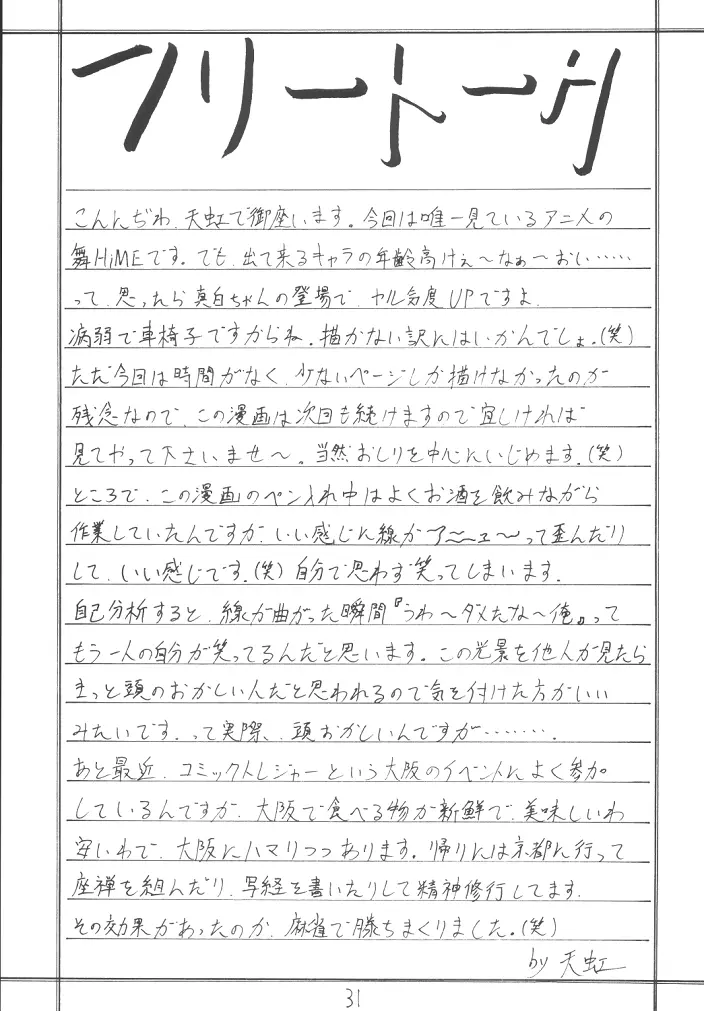 フリートーク
こんんぢわ、天虹で御座います。今回は唯一見ているアニメの
舞HiMEです。でも、出て来るキャラの年齢高けぇ～なぁ～おい……
って、思ったら真白ちゃんの登場で、ヤル気度UPですよ。
病弱で車椅子ですからね。描かない訳にはいかんでしょ。(笑)
ただ今回は時間がなく、少ないページしか描けなかったのが
残念なので、この漫画は次回も続けますので宜しければ
見てやって下さいませ～。当然おしりを中心にいじめます。(笑)
ところで、この漫画のペン入れ中はよくお酒を飲みながら
作業していたんですが、いい感じに線が って歪んだり
して、いい感じです。(笑)自分で思わず笑ってしまいます。
自己分析すると、線が曲がった瞬間『うわ～ダメだな～俺』って
もう一人の自分が笑ってるんだと思います。この光景を他人が見たら
きっと頭のおかしい人だと思われるので気を付けた方がいい
みたいです。って実際、頭おかしいんですが………。
あと最近、コミックトレジャーという大阪のイベントによく参加
しているんですが、大阪で食べる物が新鮮で、美味しいわ
安いわで、大阪にハマりつつあります。帰りには京都に行って
座禅を組んだり、写経を書いたりして精神修行してます。
その効果があったのか、麻雀で勝ちまくりました。(笑)
by 天虹
31